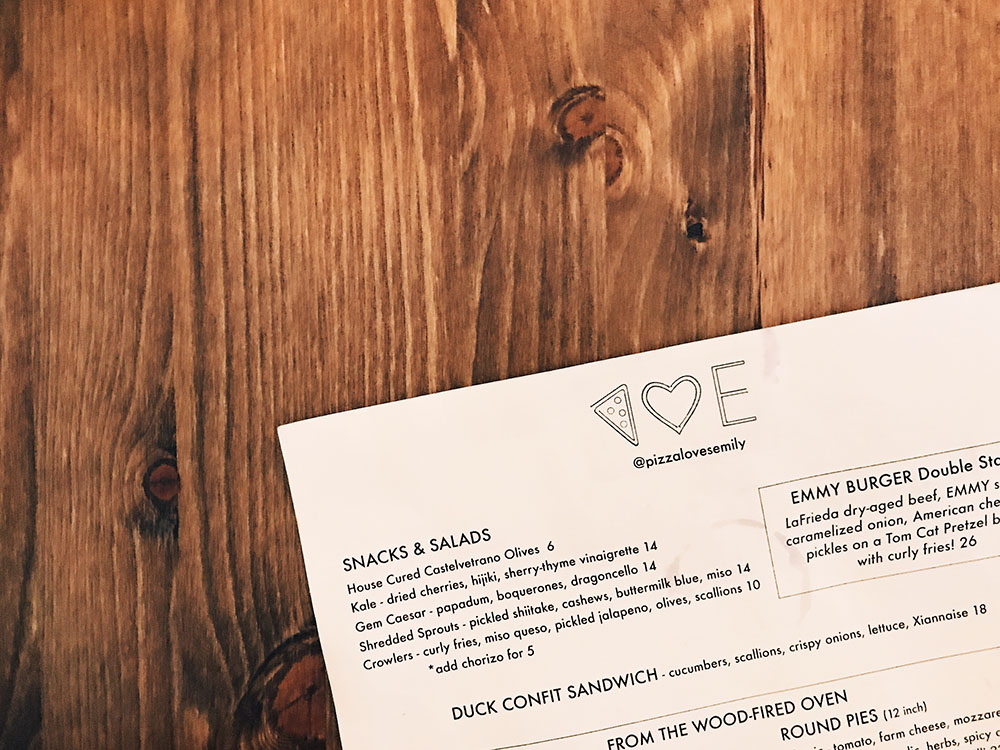 E
@pizzalovesemily
SNACKS & SALADS
House Cured Castelvetrano Olives 6
Kale - dried cherries, hijiki, sherry-thyme vinaigrette 14
Gem Caesar - papadum, boquerones, dragoncello 14
Shredded Sprouts - pickled shiitake, cashews, buttermilk blue, miso 14
Crowlers - curly fries, miso queso, pickled jalapeno, olives, scallions 10
*add chorizo for 5
EMMY BURGER Double
LaFrieda dry-aged beef, EMMY
caramelized onion, American
pickles on a Tom Cat Pretzel
with curly fries! 26
DUCK CONFIT SANDWICH - cucumbers, scallions, crispy onions, lettuce, Xiannaise 18
FROM THE WOOD-FIRED OVEN
ROUND PIES (12 inch)
tomato, farm cheese,
herbs, spicy